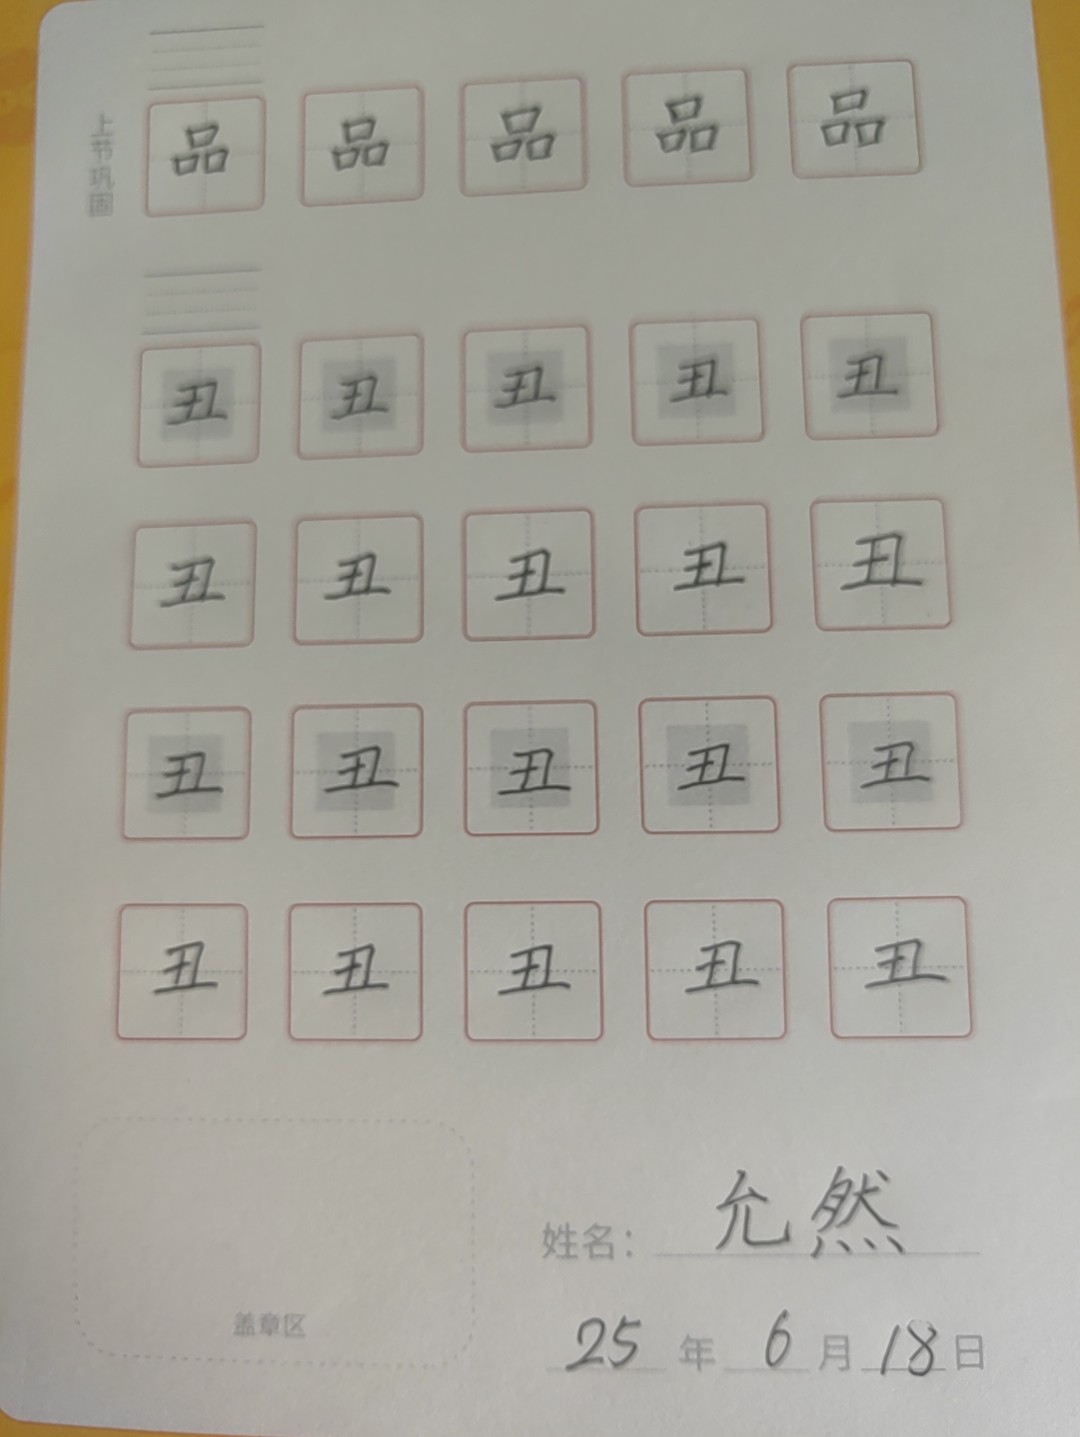 上节巩固
品 品 品 品 品
丑 丑 丑 丑 丑
丑 丑 丑 丑 丑
丑 丑 丑 丑 丑
丑 丑 丑 丑 丑
姓名：允然
盖章区
25年6月18日